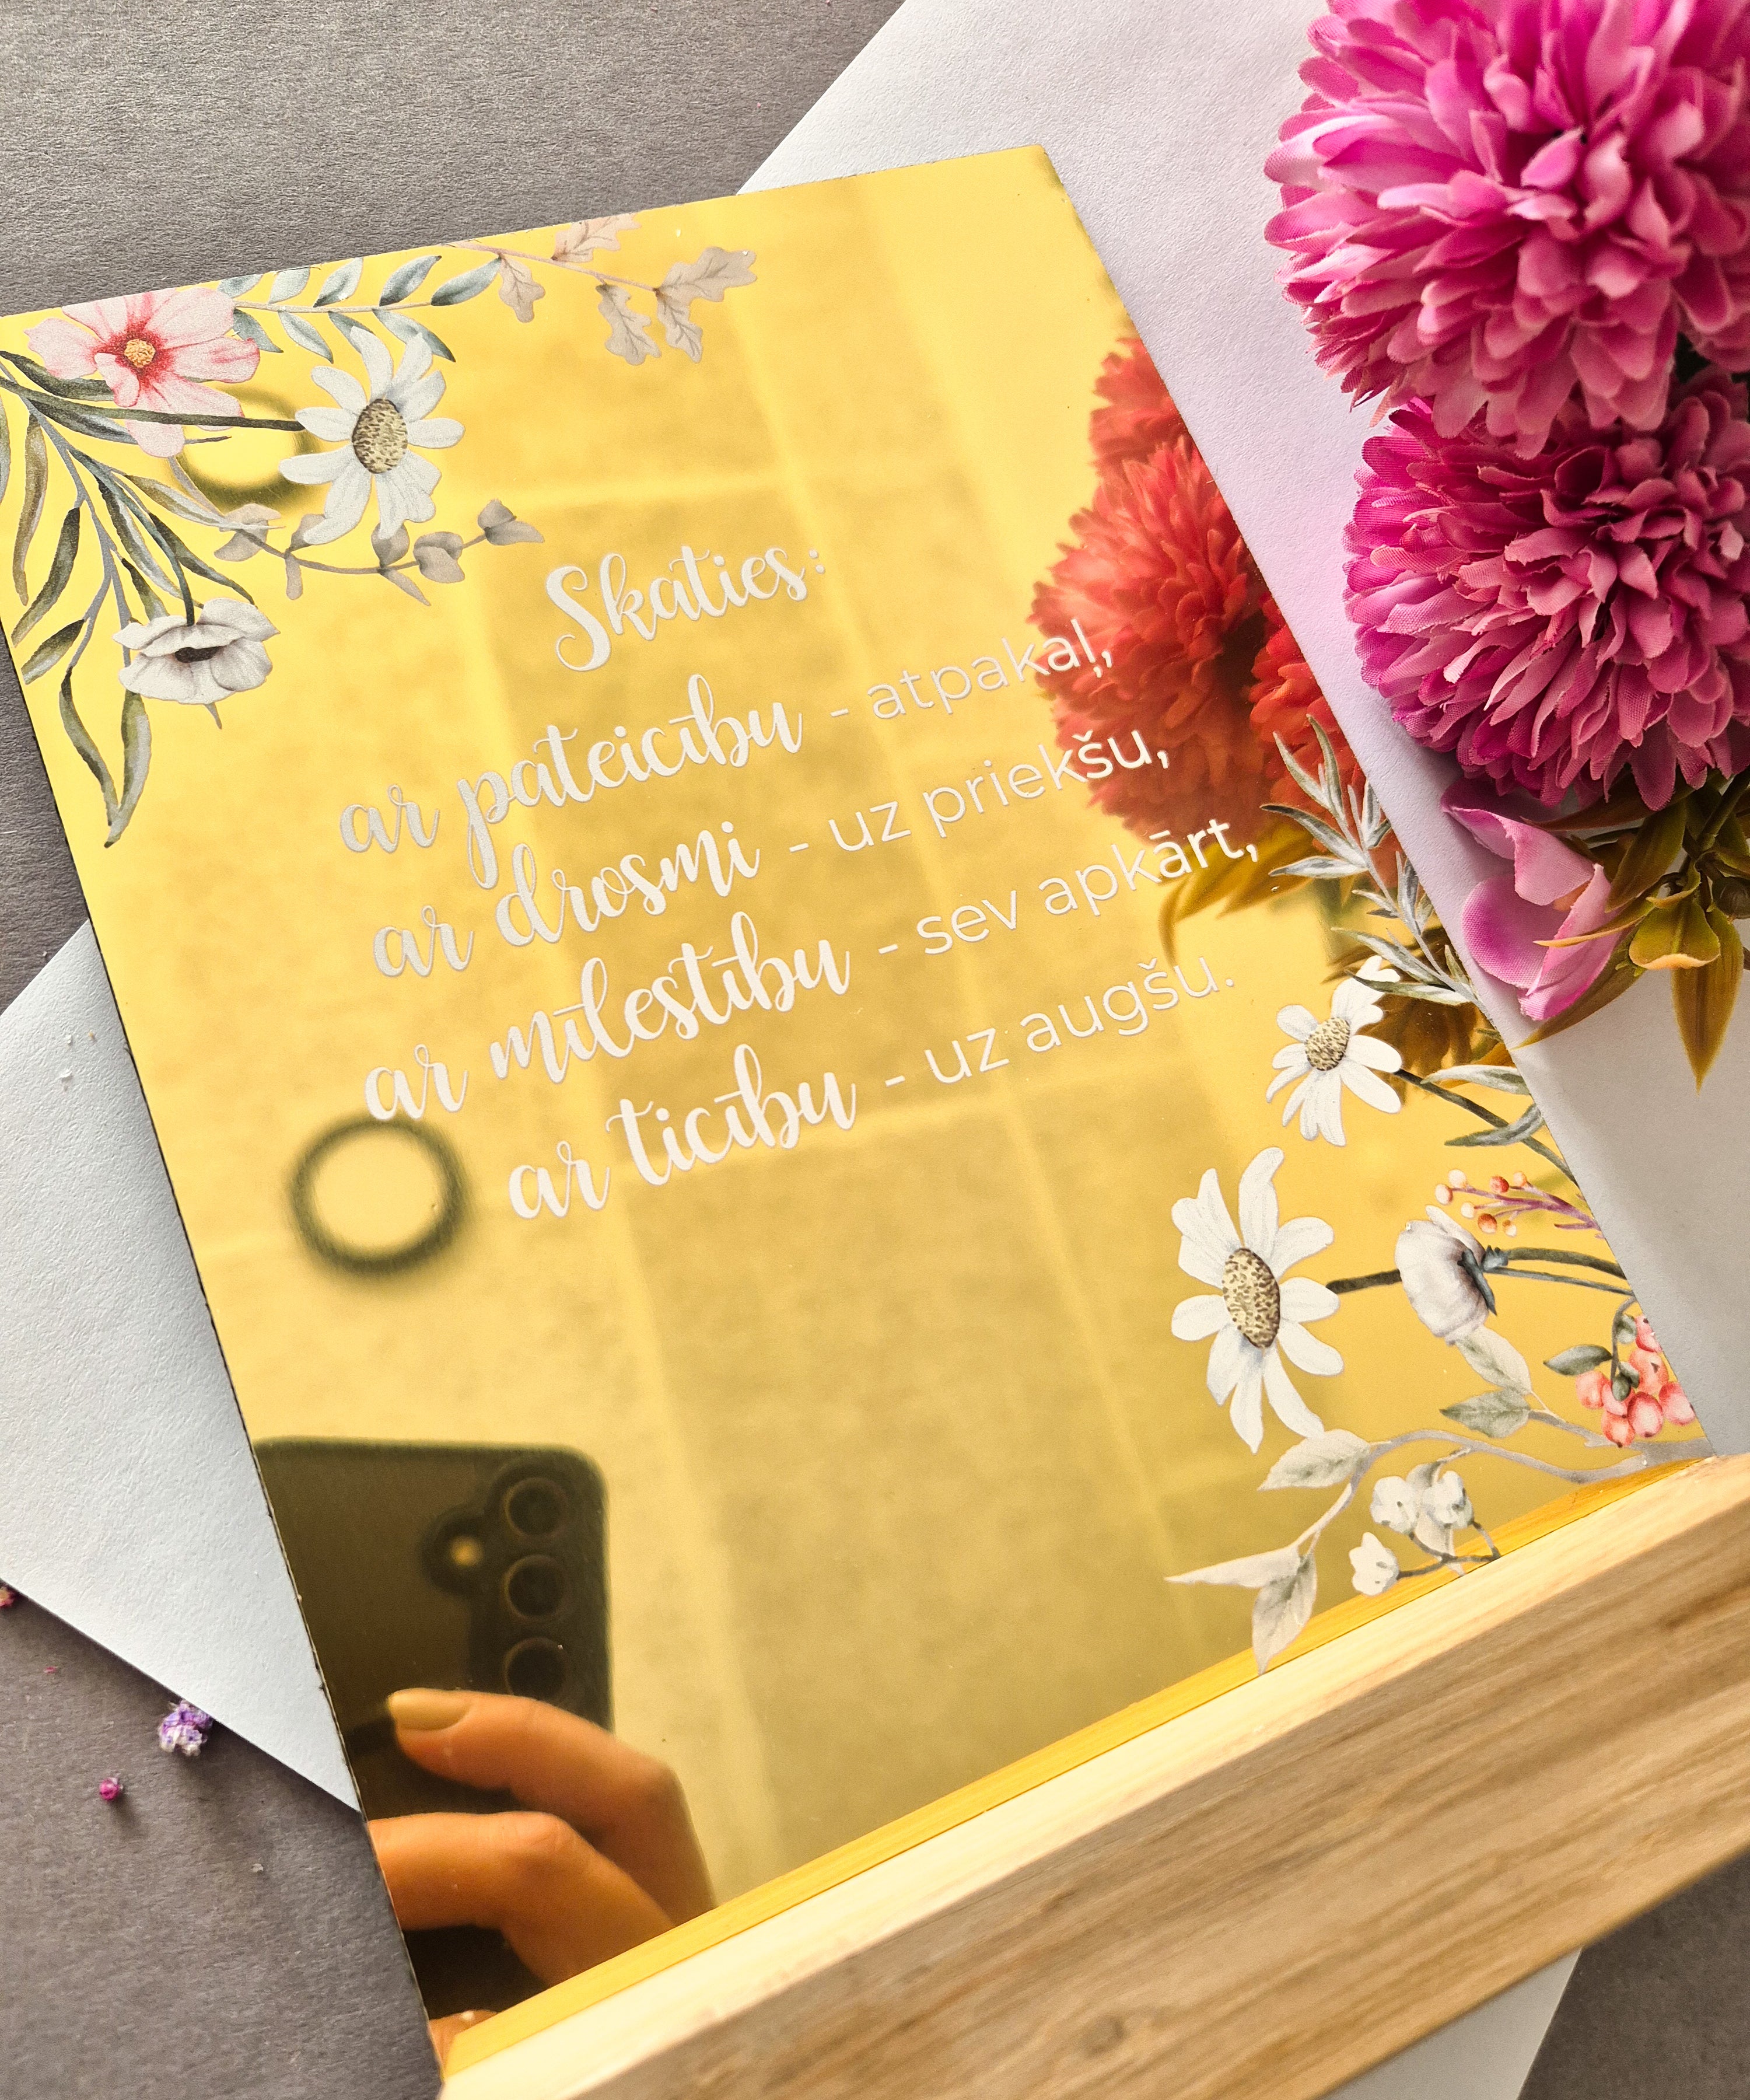 Skaties:
ar pateicību - atpakaļ,
ar drosmi - uz priekšu,
ar mīlestību - sev apkārt,
ar ticību - uz augšu.